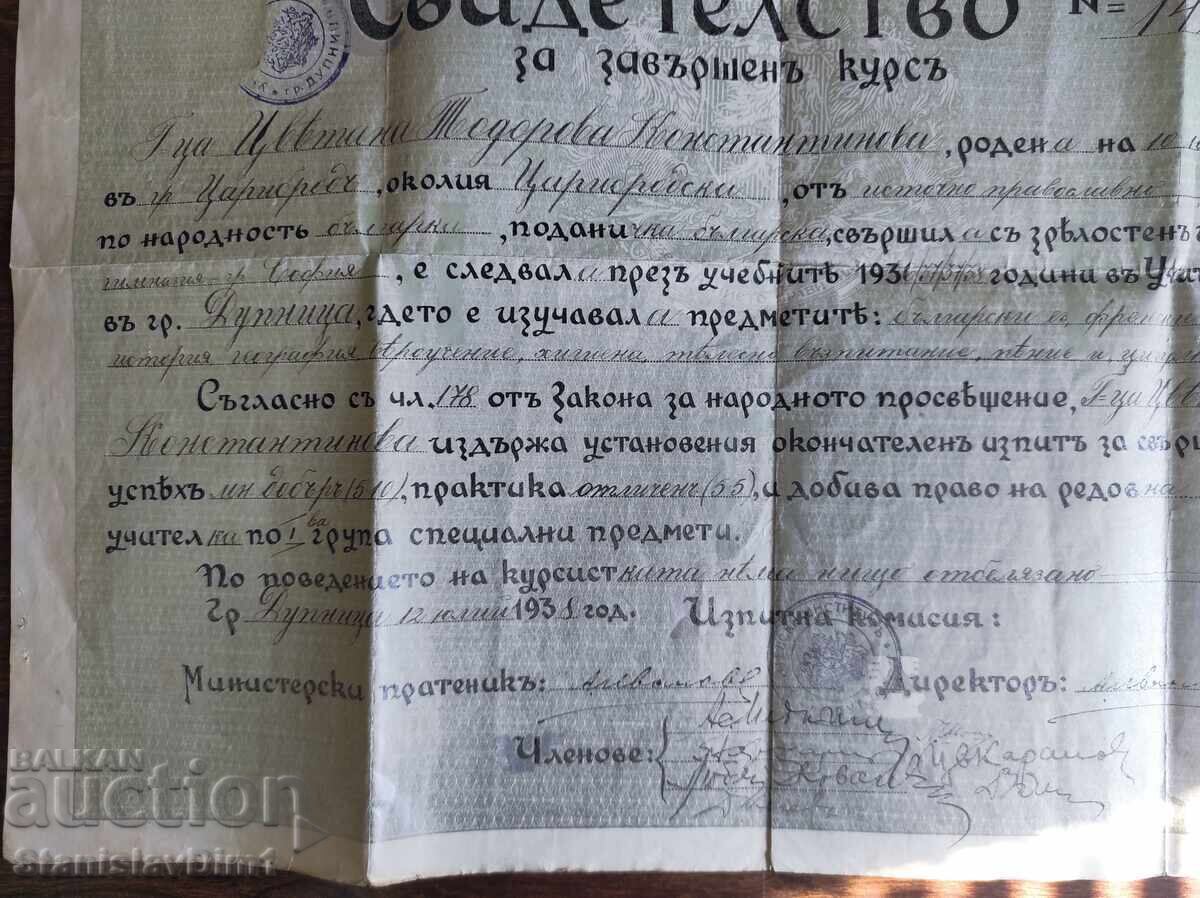 Свидетелство №
за завършенъ курсъ
Г-ца Цвѣтана Тодорова Константинова, родена на 10
въ гр. Царибродъ, околия Царибродска, отъ источно православно
по народность българка, поданичка българска, свършила съ зрѣлостенъ
гимназия гр. София, е следвала презъ учебнитѣ 193 години въ Учит
въ гр. Дупница, гдето е изучавала предметитѣ: български ез, френски
история география вѣроучение, хигиена, тѣлесно възпитание, пѣние и
Съгласно съ чл. 178 отъ Закона за народното просвѣщение, Г-ца Цв
Константинова издържа установения окончателенъ изпитъ за свър
успѣхъ мн добъръ (5 10), практика отличенъ (5 5), и добива право на редовна
учителка по I ва група специални предмети.
По поведението на курсистката нѣма нищо отбелязано
Гр Дупница 12 юлий 1931 год. Изпитна комисия:
Министерски пратеникъ: Директоръ:
Членове: Цв Карамов
BALKAN
auction
StanislavDim1